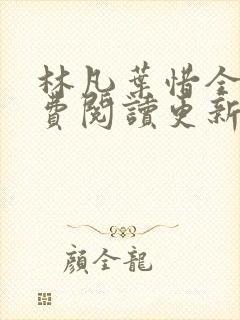 林凡葉惜全
費閱讀更新
顔全龍